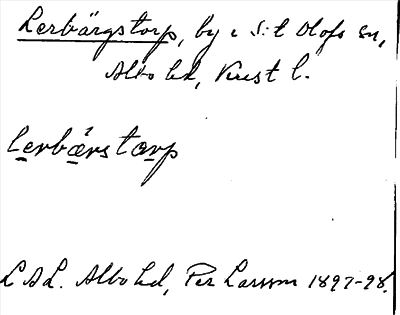 Lerbärgstorp, by i S:t Olofs sn,
Albo hd, Krist l.
lerbærstorp
LAL. Albo hd, Per Larsson 1897-98.